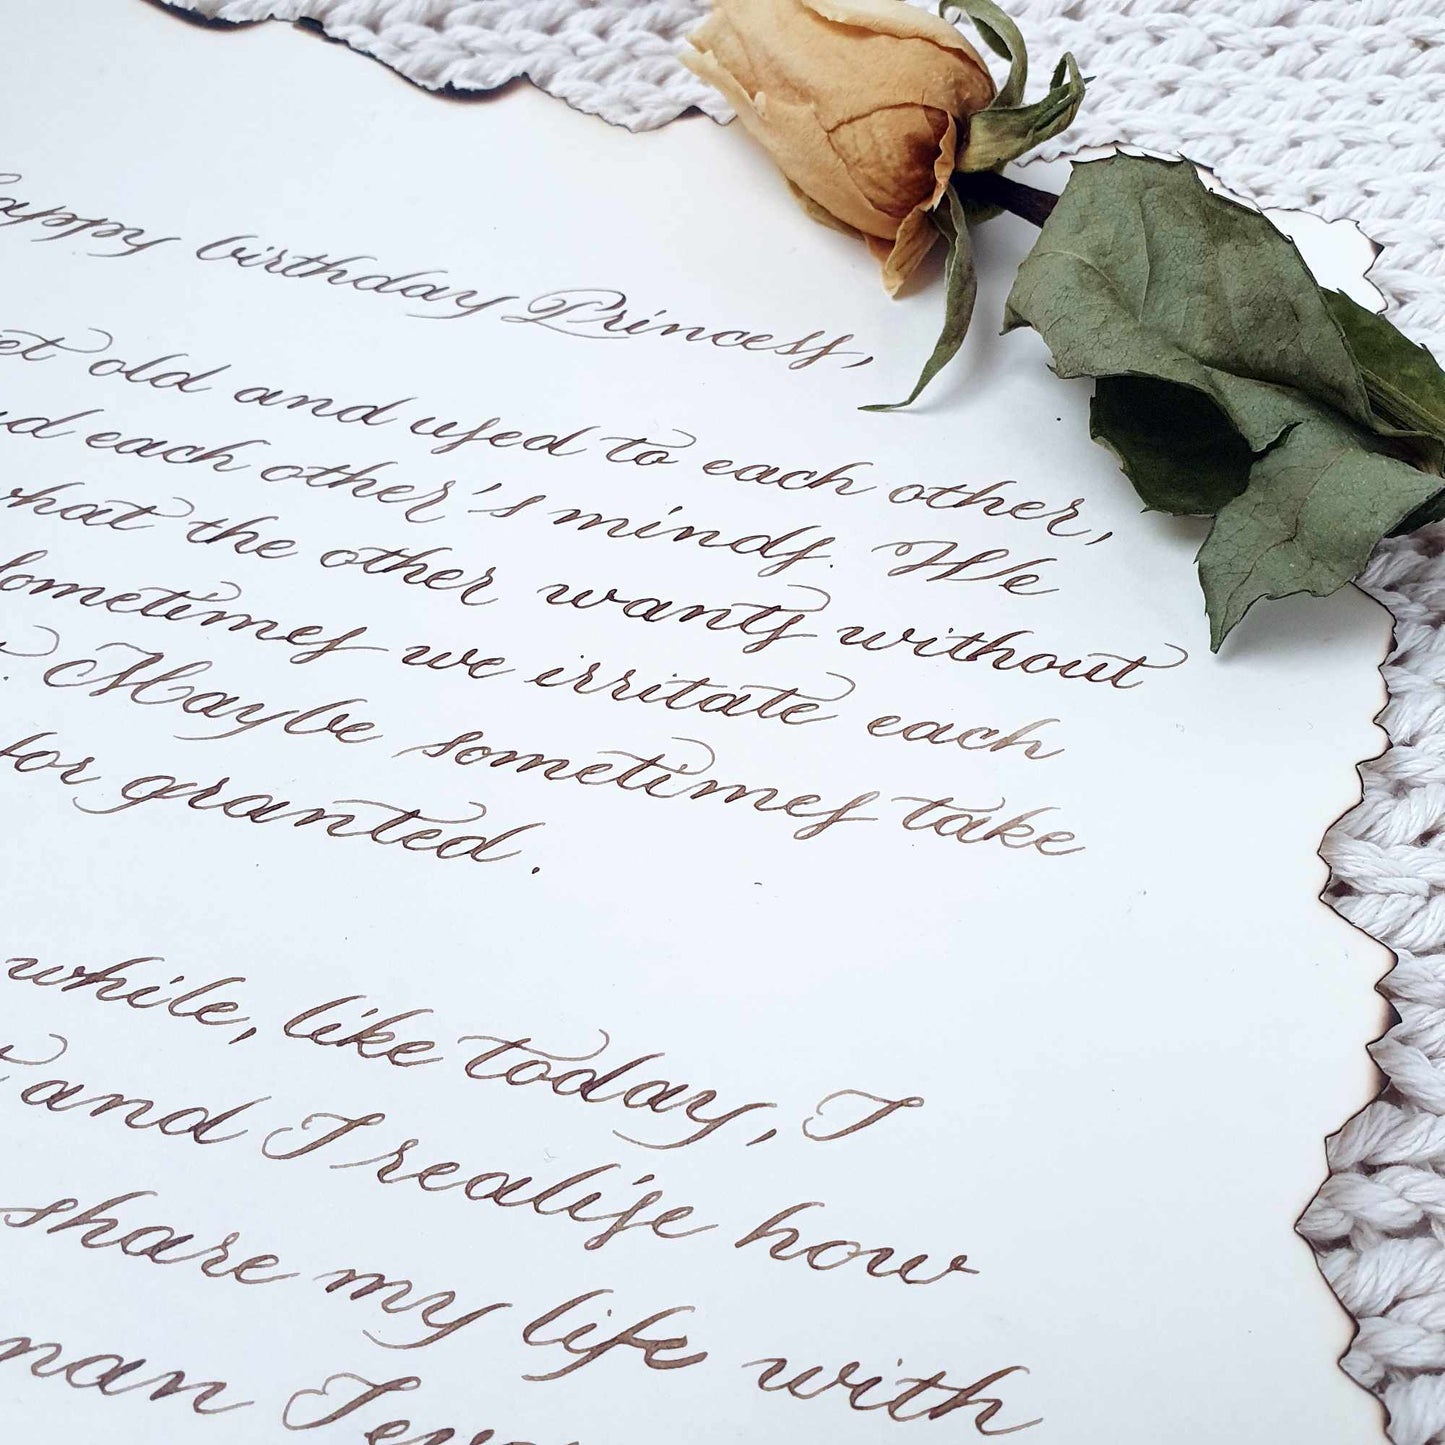 happy birthday Princess,
get old and used to each other,
each other's minds. We
what the other wants without
Sometimes we irritate each
Maybe sometimes take
for granted.
while, like today, I
and I realise how
share my life with
I